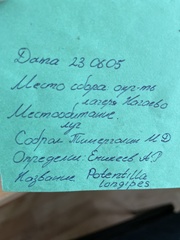 Дата 23 0605
Место сбора окр-ть
лагеря Нагаево
Местообитание.
луг
Собрал
Определил Еникеев А
Название Potentilla
longipes